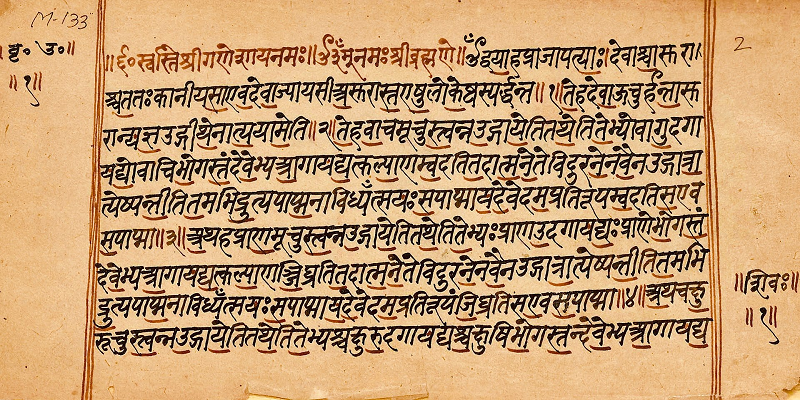 M-133
2
बृ॰ उ॰॥
॥१॥
॥६०स्वस्तिश्रीगणेशायनमः॥ॐनमःश्रीब्रह्मणे॥ॐद्वयाहप्राजापत्याः।देवाश्चासुरा।
श्चततःकानीयसाएवदेवाज्यायसाअसुरास्तएषुलोकेष्वस्पर्द्धन्त॥१॥तेहदेवाऊचुर्हन्तासु
रान्यज्ञउद्गीथेनात्ययामेति॥२॥तेहवाचमूचुस्त्वन्नउद्गायेतितथेतितेभ्योवागुदगा
यद्योवाचिभोगस्तंदेवेभ्यआगायद्यत्कल्याणम्वदतितदात्मनेतेविदुरनेनवैनउद्गात्रा
त्येष्यन्तीतितमभिद्रुत्यपाप्मनाविध्यँत्सयःसपाप्मायदेवेदमप्रतिरूपम्वदतिसएव
सपाप्मा॥३॥अथहप्राणमूचुस्त्वन्नउद्गायेतितथेतितेभ्यःप्राणउदगायद्यःप्राणेभोगस्तं
देवेभ्यआगायद्यत्कल्याणञ्जिघ्रतितदात्मनेतेविदुरनेनवैनउद्गात्रात्येष्यन्तीतितमभि
द्रुत्यपाप्मनाविध्यँत्सयःसपाप्मायदेवेदमप्रतिरूपंजिघ्रतिसएवसपाप्मा॥४॥अथचक्षु
रूचुस्त्वन्नउद्गायेतितथेतितेभ्यश्चक्षुरुदगायद्यश्चक्षुषिभोगस्तन्देवेभ्यआगायद्य
॥शिवः॥
॥१॥